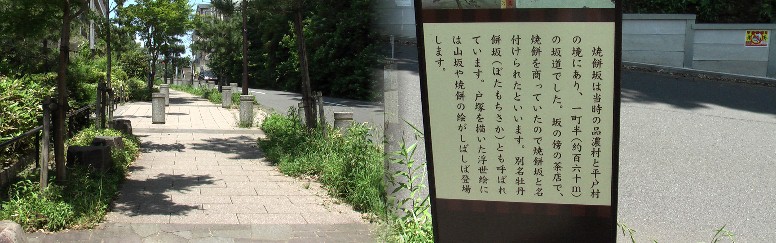 焼餅坂は当時の品濃村と平戸村
の境にあり、一町半(約百六十m)
の坂道でした。坂の傍の茶店で、
焼餅を商っていたので焼餅坂と名
付けられたといいます。別名牡丹
餅坂(ぼたもちさか)とも呼ばれ
ています。戸塚を描いた浮世絵に
は山坂や焼餅の絵がしばしば登場
します。